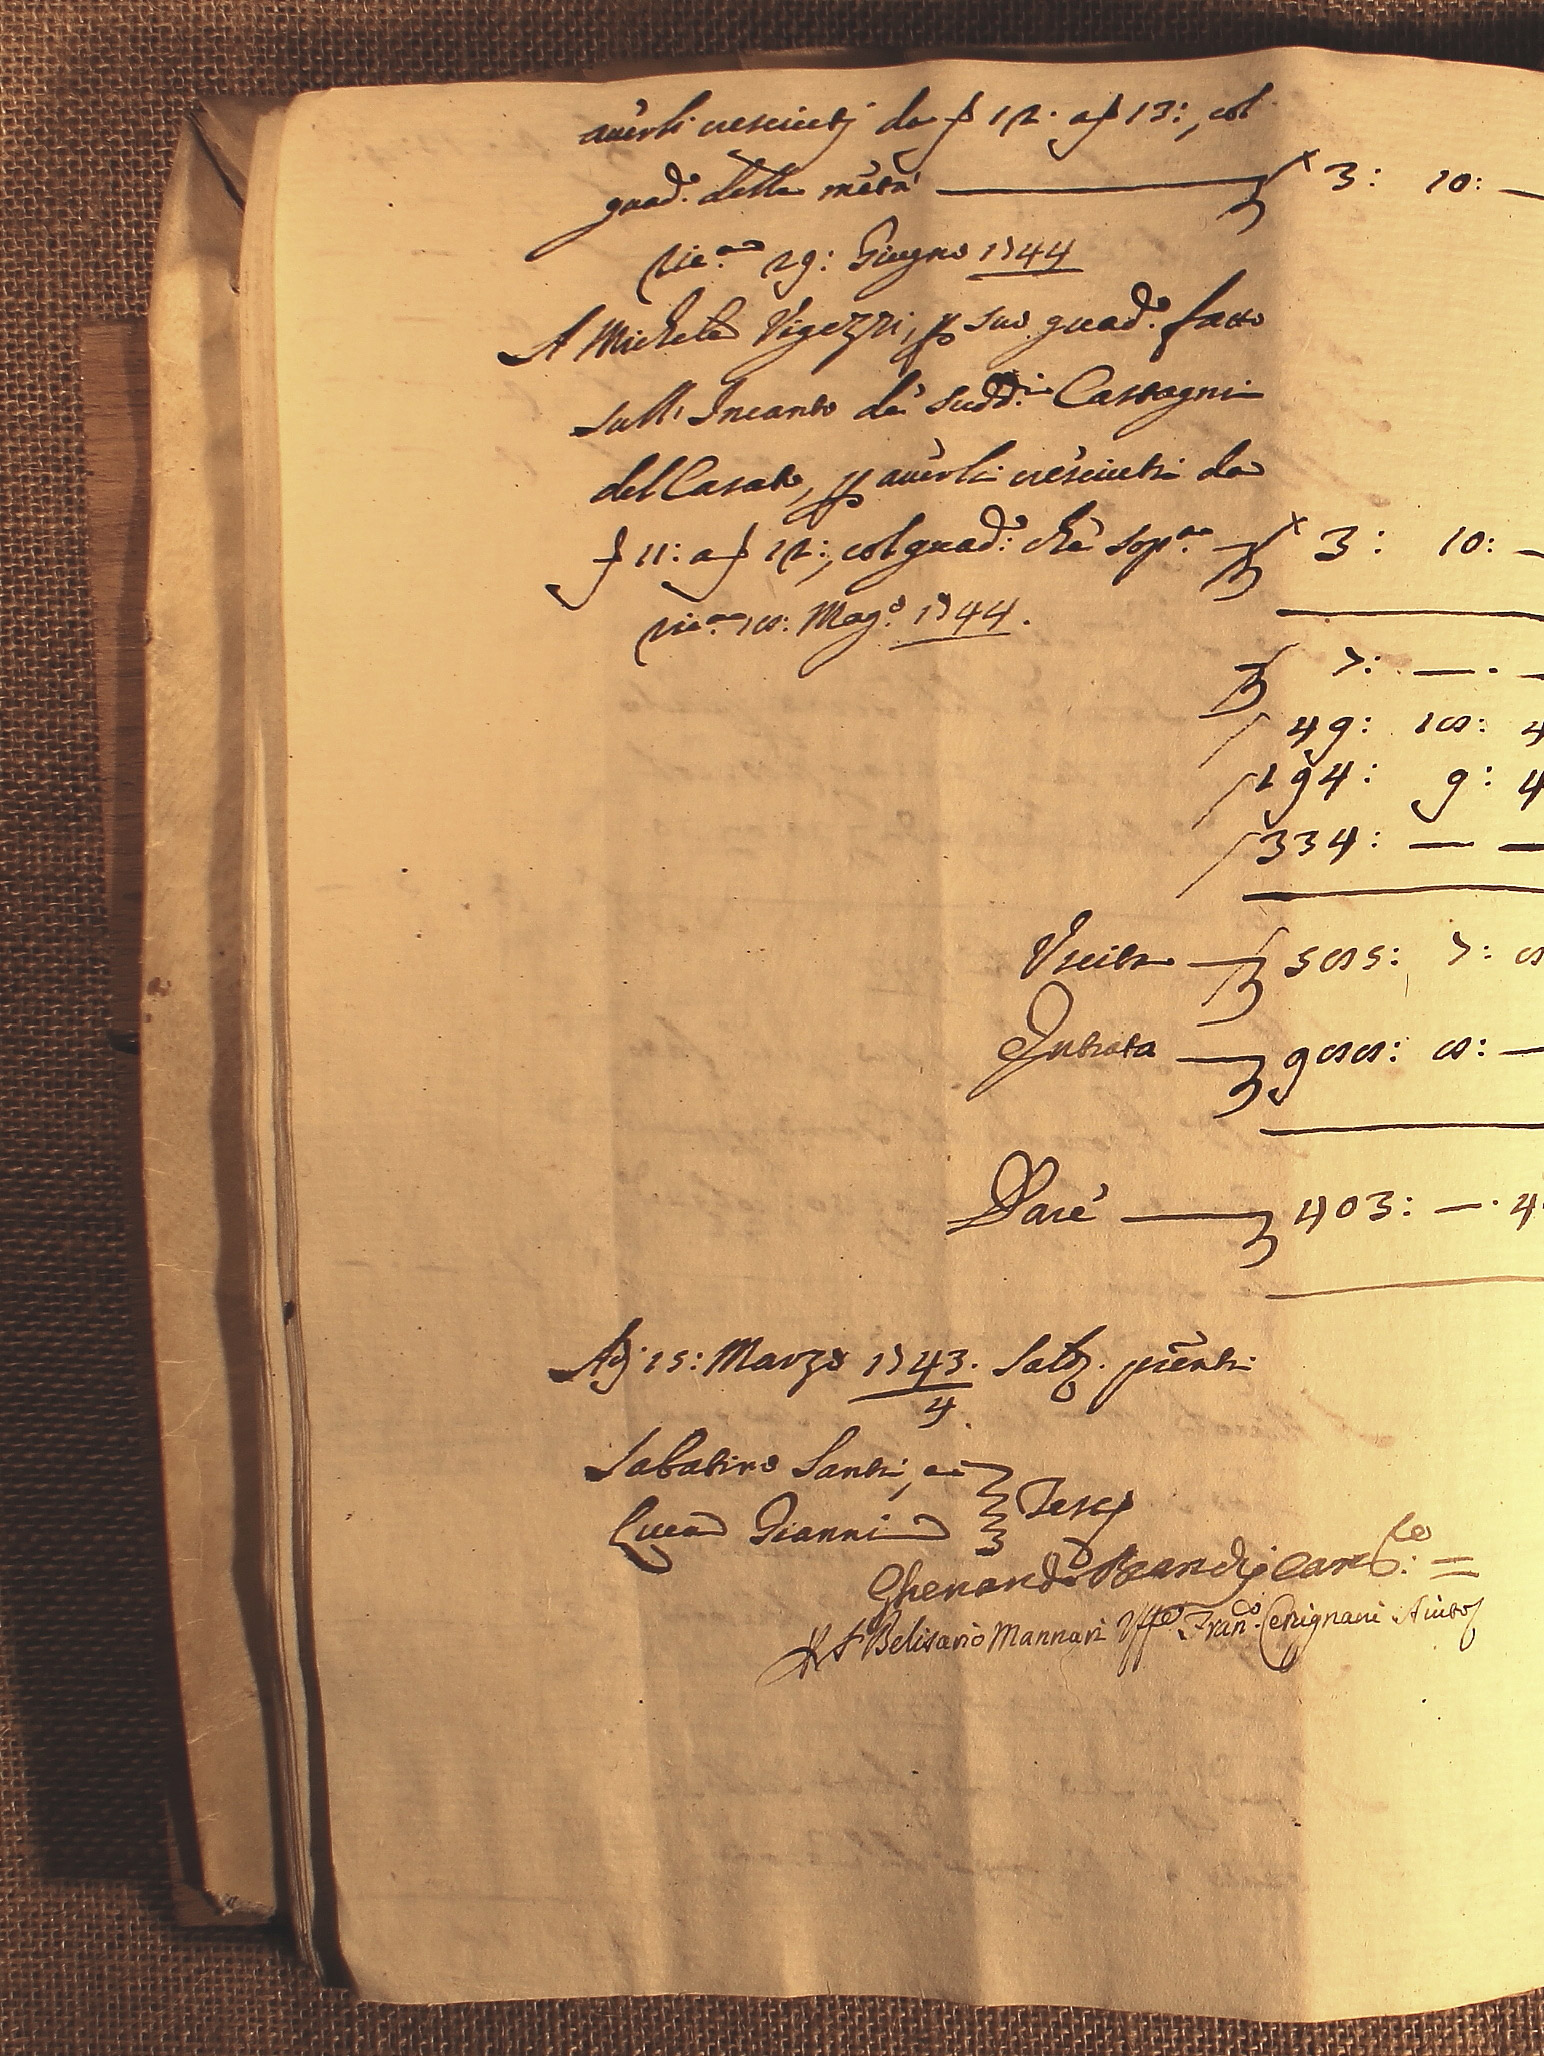 auerli cresciuti da ƒ 12. a ƒ 13:, col
guad.o della metà — ƒ 3: 10: —
Ric.o 29: Giugno 1744
A Michele Vigezzi, p suo guad.o fatto
sull'Incanto de' Sudd.i Castagni
del Casato, p auerli cresciuti da
ƒ 11: a ƒ 12:, col guad.o che sop.a — ƒ 3: 10: —
Ric.o 16: Mag.o 1744.
ƒ 7: — . —
ƒ 49: 16: 4
ƒ 194: 9: 4
ƒ 334: — —
Uscita — ƒ 565: 7: 6
Entrata — 966: 6: —
Dare — 403: — . 4
Adj 15: Marzo 1743. Sald. p̃senti
4.
Sabatino Santi, e
Luca Giannini Tesij
Gherardo Brandi Canc.re =
Belisario Mannari Uff.e Fran.o Cerignani